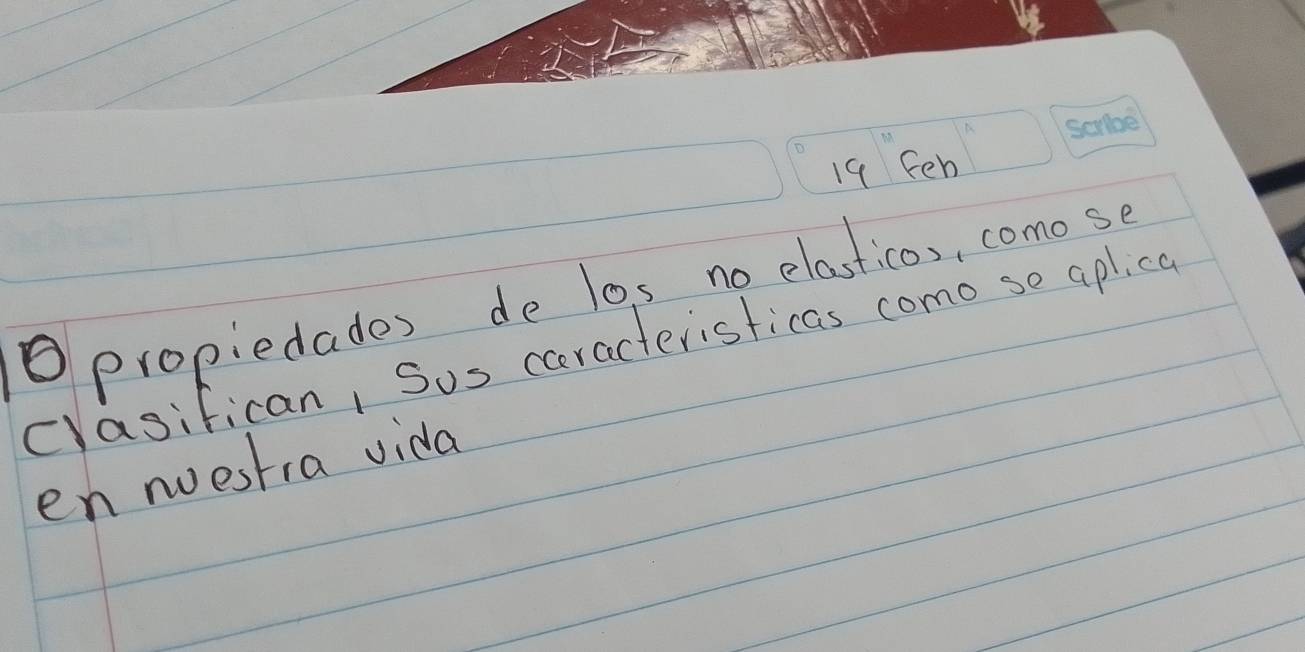 D M A
Scribe
19 Feb
10 propiedades de los no elasticos, como se
clasifican, sus caracteristicas como se aplica
en nuestra vida